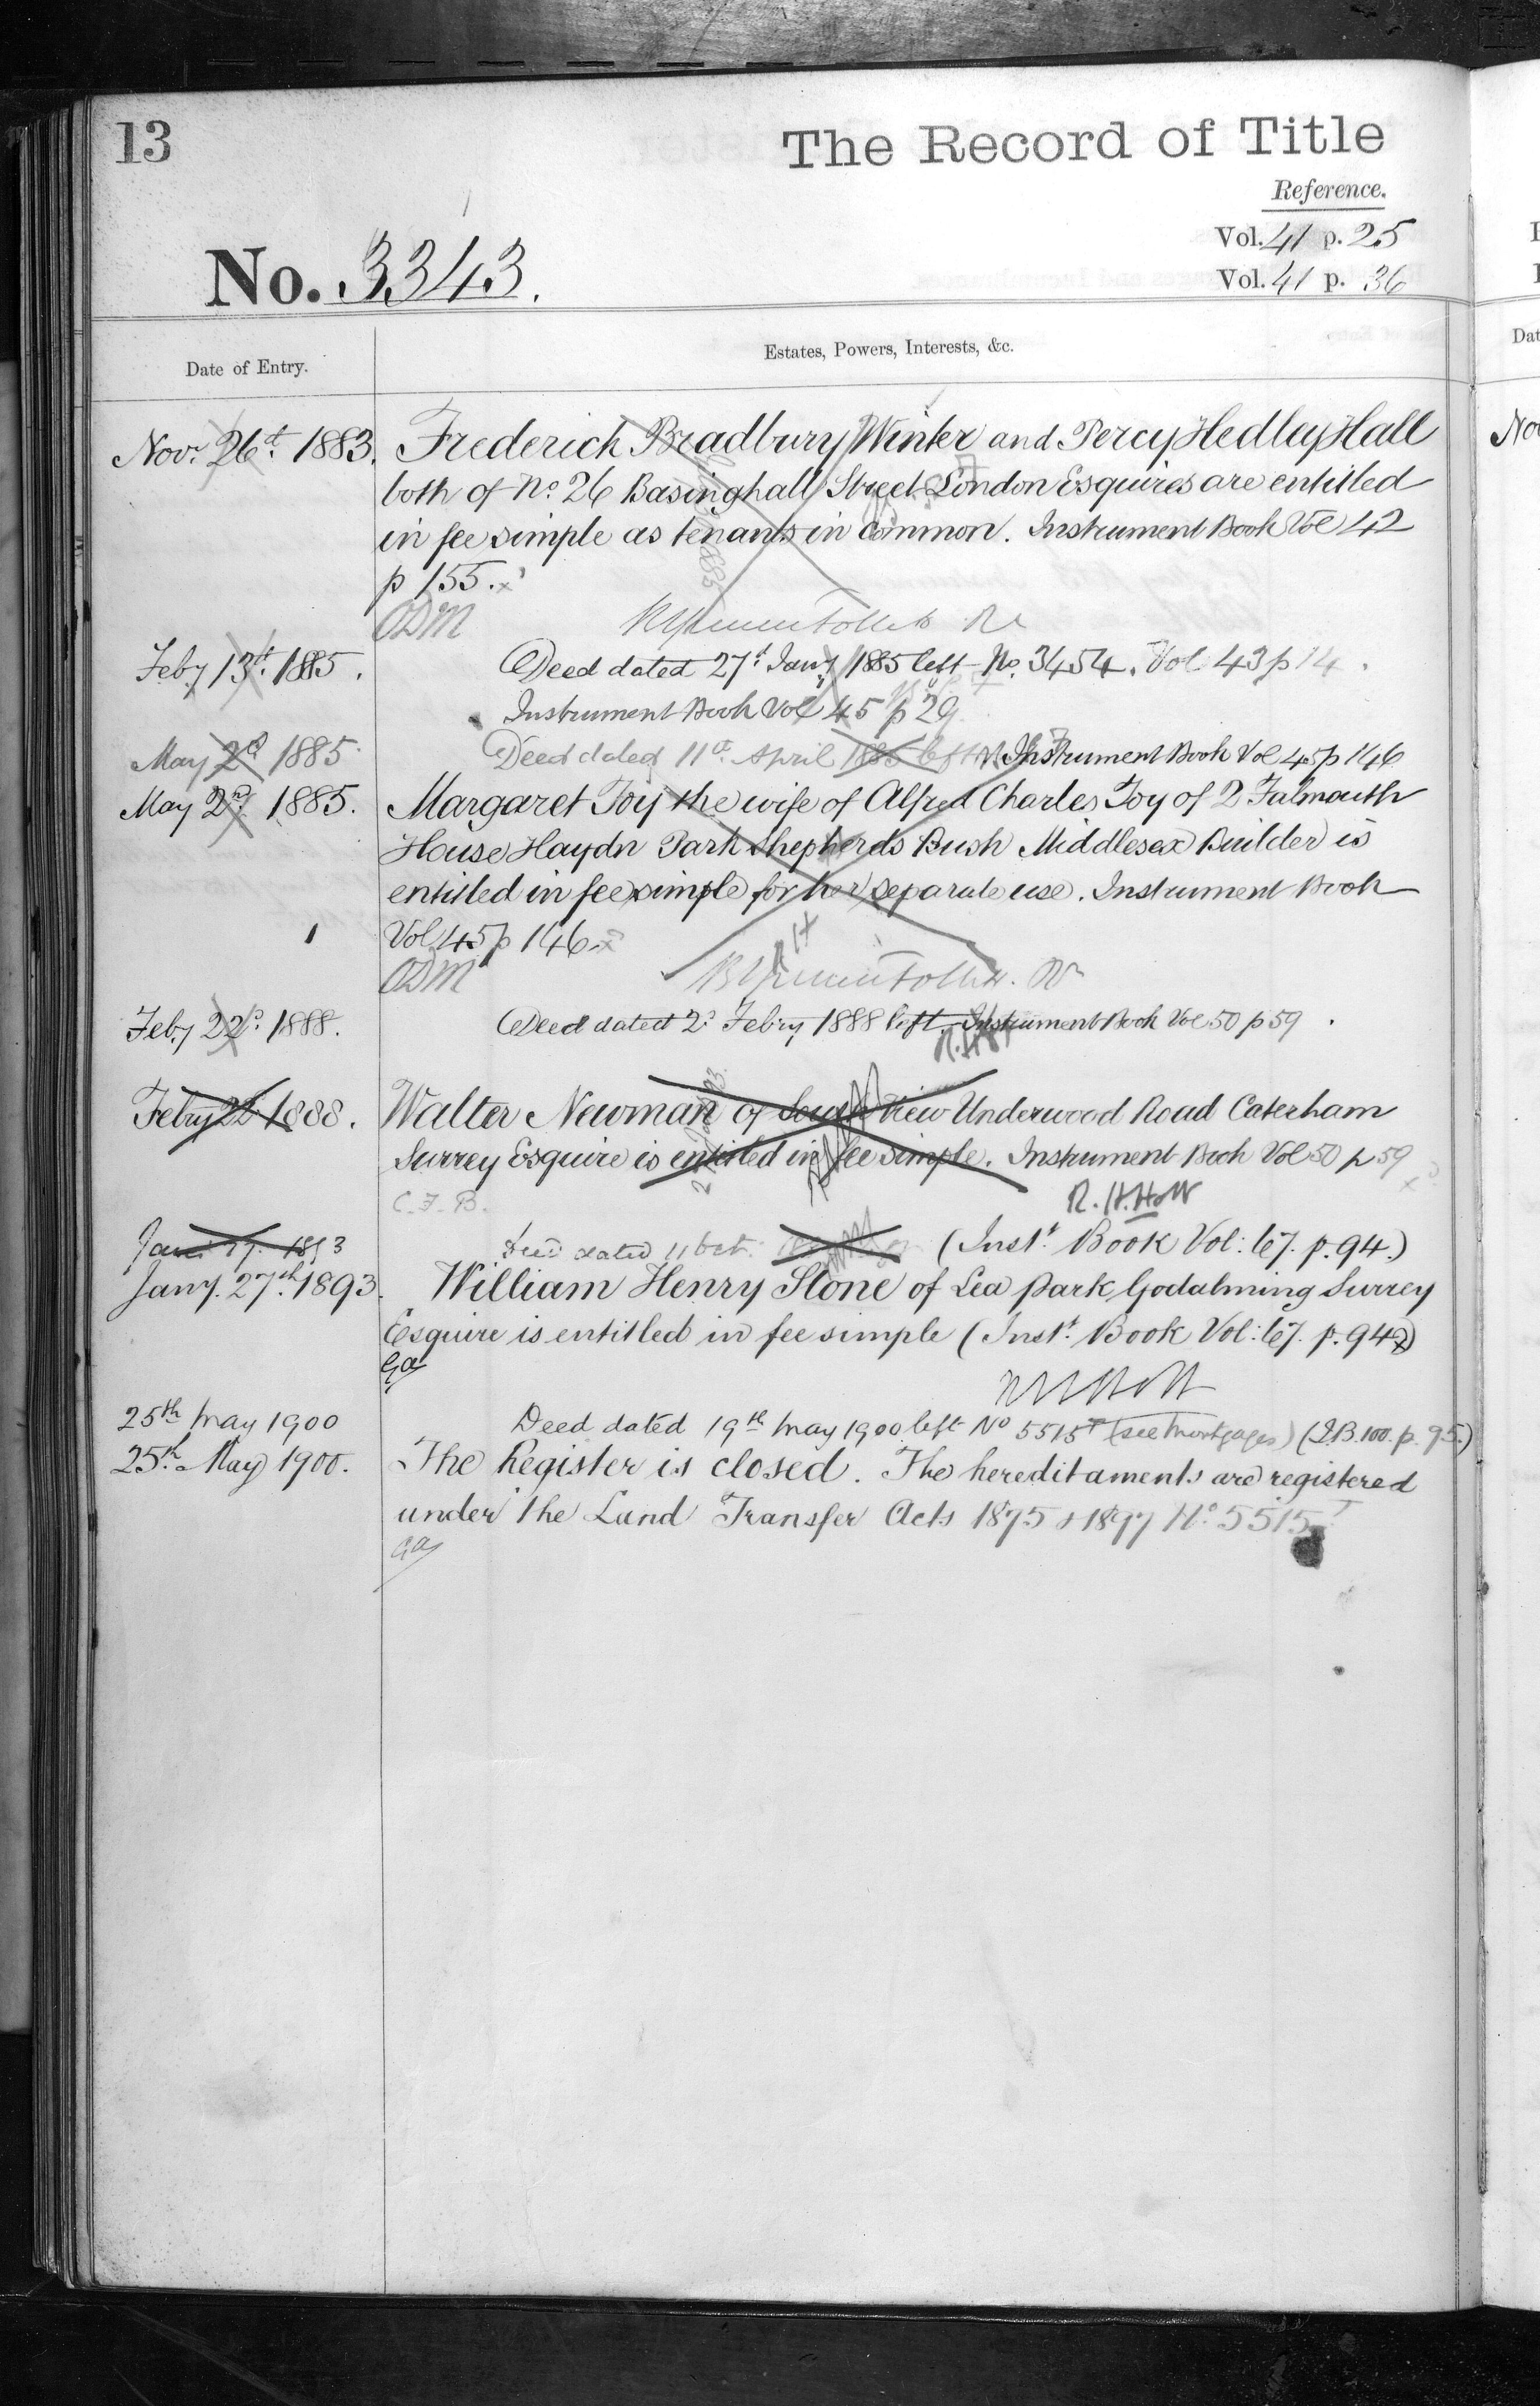 13
The Record of Title
Reference.
Vol. 41 p. 25
No. 3343.
Vol. 41 p. 36
Date of Entry.
Estates, Powers, Interests, &c.
Nov.r 26t. 1883. Frederick Bradbury Winter and Percy Hedley Hall
both of No. 26 Basinghall Street London Esquires are entitled
in fee simple as tenants in common. Instrument Book Vol 42
p 155.
ODM
Feby 13t. 1885. Deed dated 27t Jany 1885 left No. 3454. Vol 43 p 14.
Instrument Book Vol 45 p 29
May 2d 1885 Deed dated 11th April 1885 left Instrument Book Vol 45 p 146
May 2d. 1885. Margaret Toy the wife of Alfred Charles Toy of 2 Falmouth
House Haydn Park Shepherds Bush Middlesex Builder is
entitled in fee simple for her separate use. Instrument Book
Vol 45 p 146.
ODM
Feby 22d. 1888. Deed dated 2d Febry 1888 left Instrument Book Vol 50 p 59.
Febry 22 1888. Walter Newman of South View Underwood Road Caterham
Surrey Esquire is entitled in fee simple. Instrument Book Vol 50 p 59
C.F.B. R.H.Holt
1893 dated 11 Oct. (Inst.t Book Vol: 67. p. 94.)
Jany. 27th. 1893. William Henry Stone of Lea Park Godalming Surrey
Esquire is entitled in fee simple (Inst.t Book Vol: 67. p. 94)
Ga
25th May 1900 Deed dated 19th May 1900 left No 5515T (see mortgages) (I.B. 100. p. 95.)
25th. May 1900. The Register is closed. The hereditaments are registered
under the Land Transfer Acts 1875 & 1897 No. 5515T
Ga
Dat